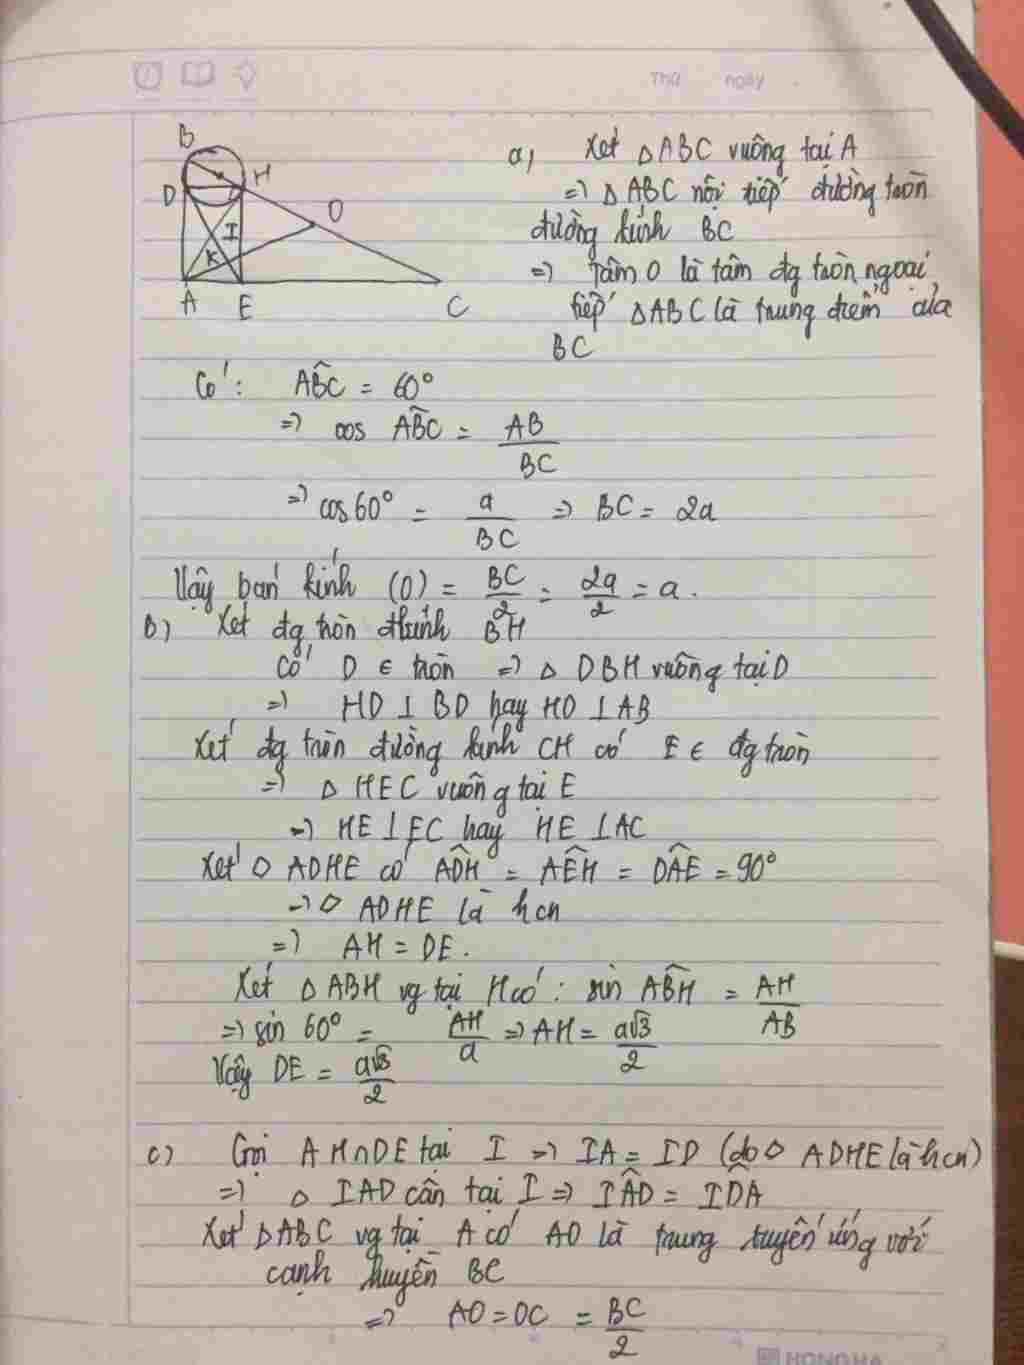 Thứ ngày
B
H
D
O
I
K
A E C
a, Xét △ABC vuông tại A
=> △ABC nội tiếp đường tròn
đường kính BC
=> Tâm O là tâm đg tròn ngoại
tiếp △ABC là trung điểm của
BC
Có: ABC^ = 60°
=> cos ABC^ = AB/BC
=> cos60° = a/BC => BC = 2a
Vậy bán kính (O) = BC/2 = 2a/2 = a.
b) Xét đg tròn đkính BH
Có D ∈ tròn => △ DBH vuông tại D
=> HD ⊥ BD hay HD ⊥ AB
Xét đg tròn đường kính CH có E ∈ đg tròn
=> △ HEC vuông tại E
=> HE ⊥ EC hay HE ⊥ AC
Xét ◇ ADHE có ADH^ = AEH^ = DAE^ = 90°
=> ◇ ADHE là hcn
=> AH = DE.
Xét △ABH vg tại H có: sin ABH^ = AH/AB
=> sin 60° = AH/a => AH = a√3/2
Vậy DE = a√3/2
c) Gọi AH∩DE tại I => IA = ID (do ◇ ADHE là hcn)
=> △ IAD cân tại I => IAD^ = IDA^
Xét △ABC vg tại A có AO là trung tuyến ứng với
cạnh huyền BC
=> AO = OC = BC/2
HONG HA